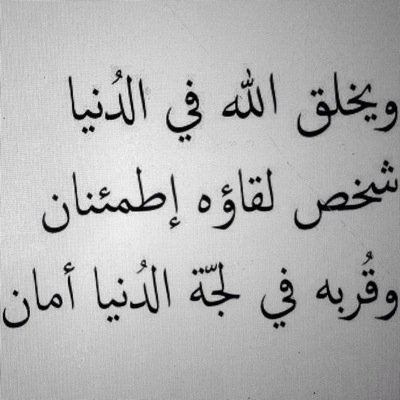 ويخلق الله في الدُنيا
شخص لقاؤه إطمئنان
وقُربه في لجّة الدُنيا أمان